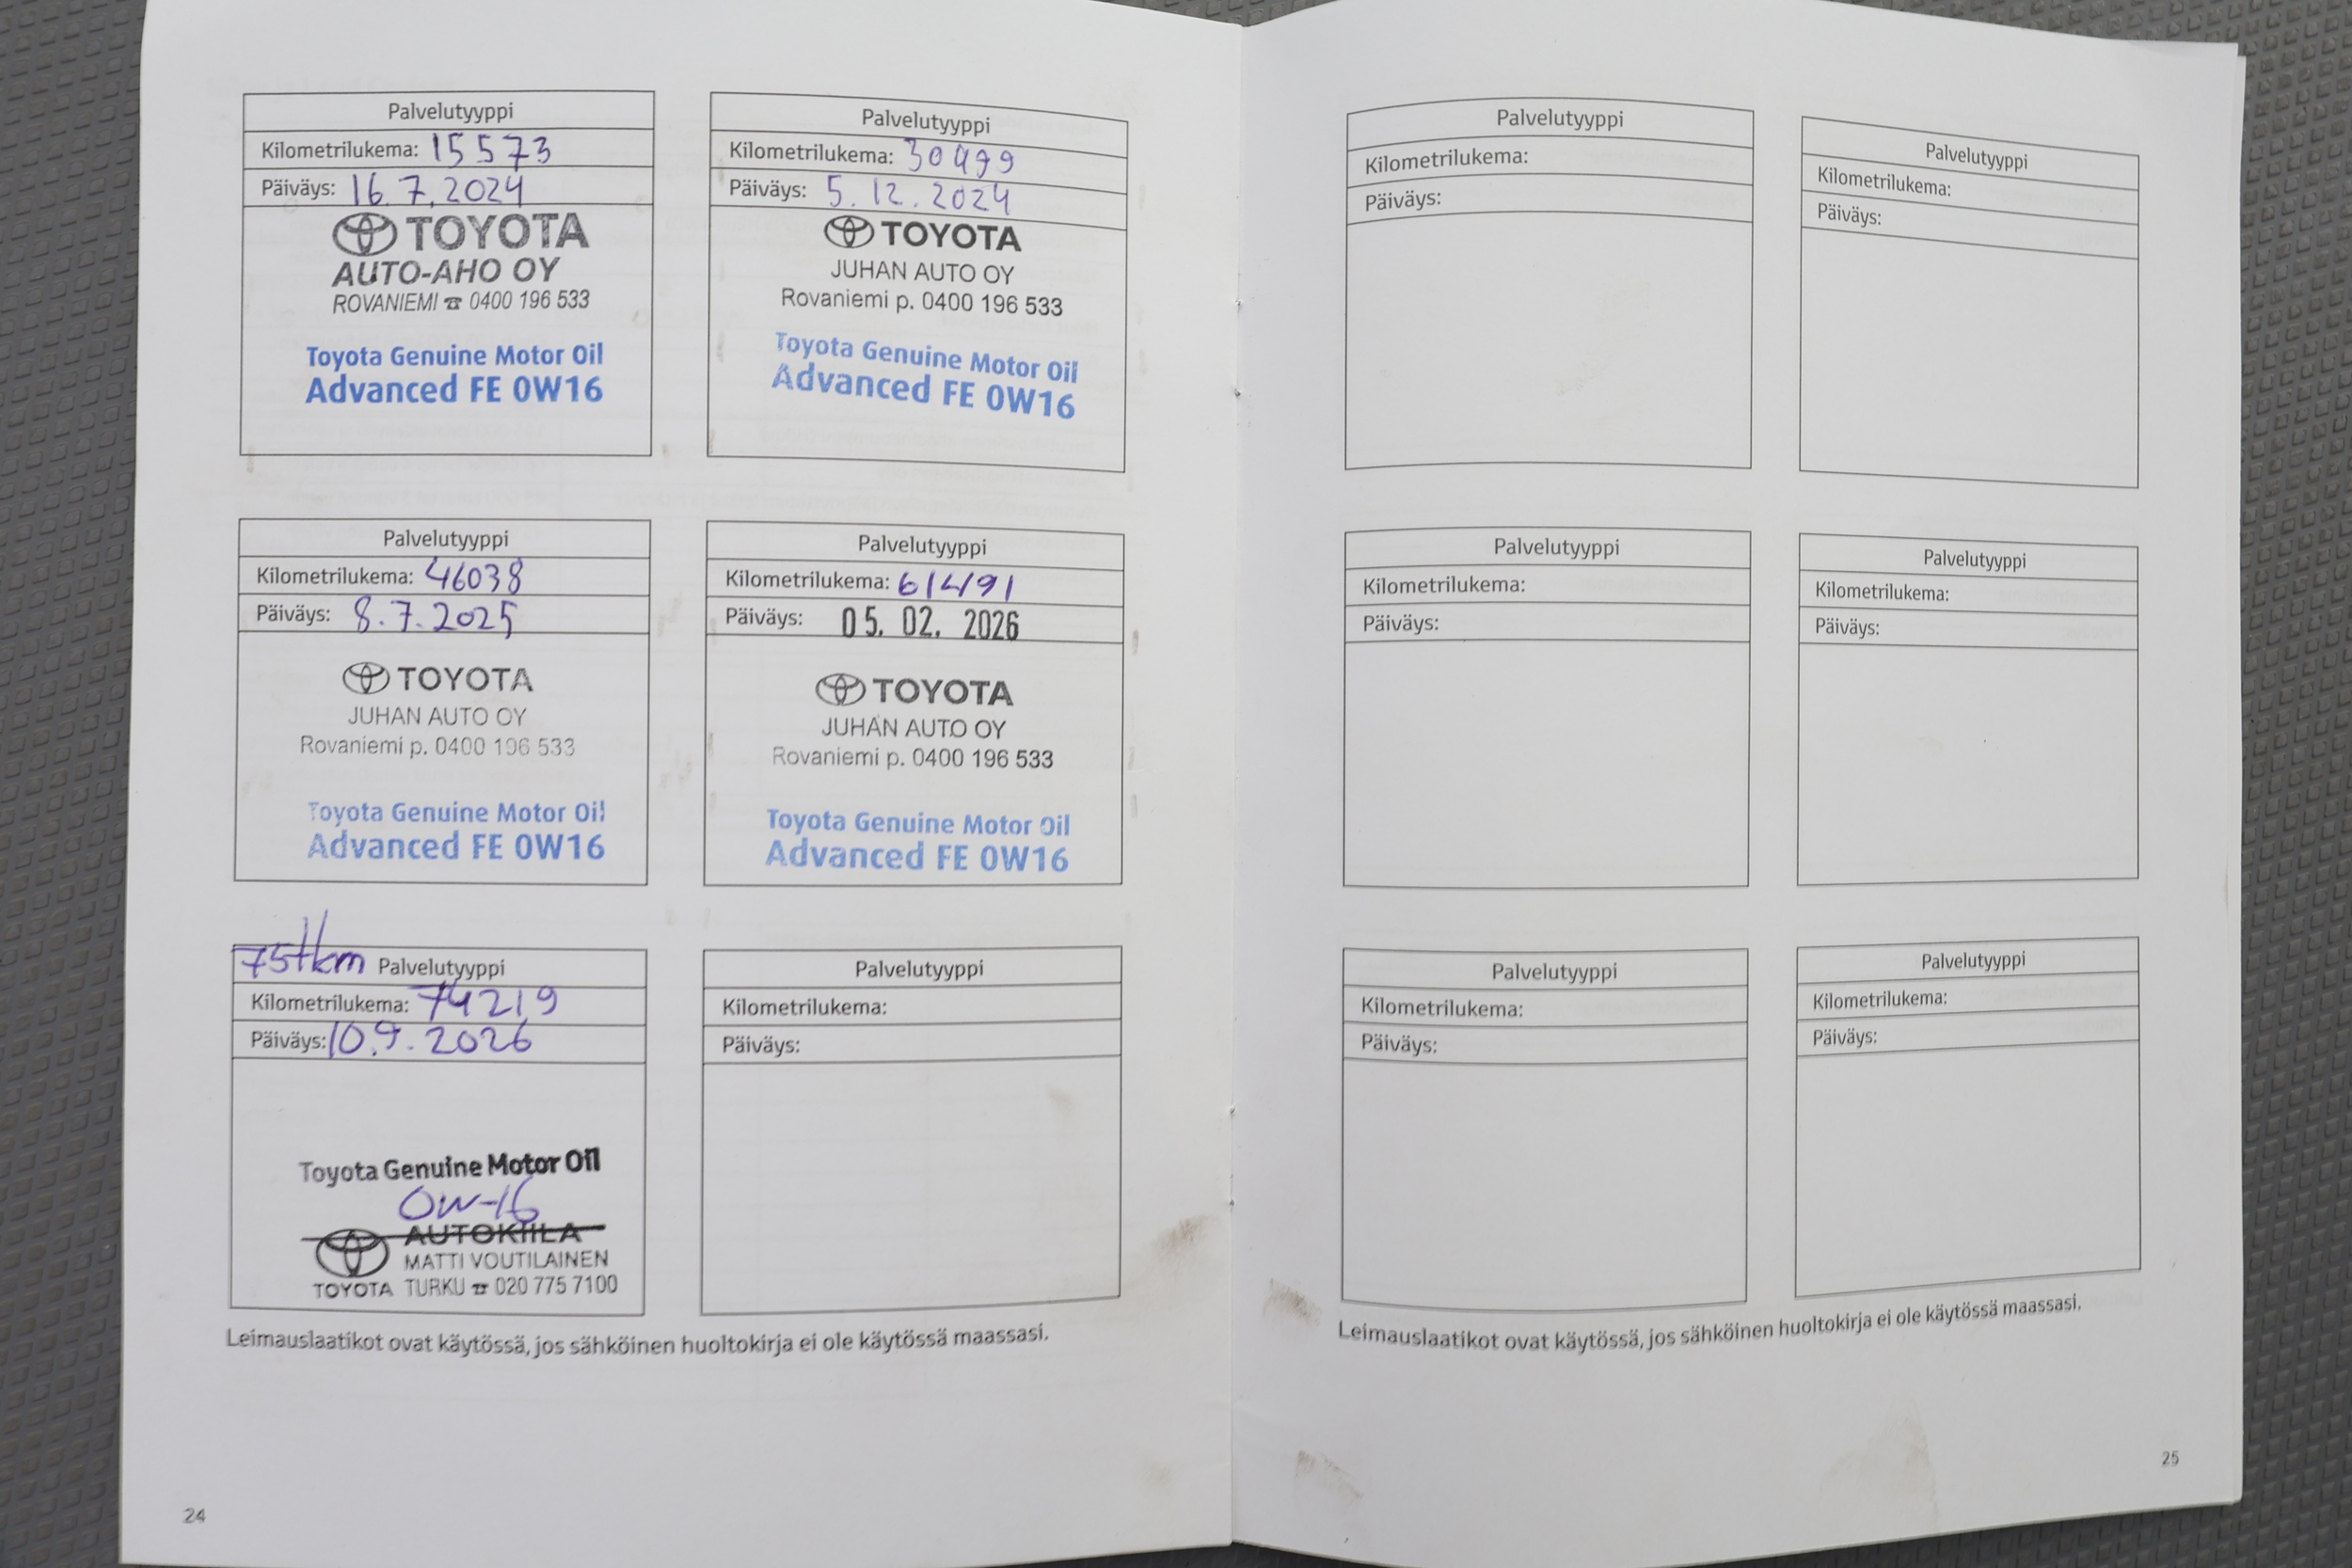 Palvelutyyppi
Kilometrilukema: 15573
Päiväys: 16.7.2024
TOYOTA
AUTO-AHO OY
ROVANIEMI ☎ 0400 196 533
Toyota Genuine Motor Oil
Advanced FE 0W16
Palvelutyyppi
Kilometrilukema: 30499
Päiväys: 5.12.2024
TOYOTA
JUHAN AUTO OY
Rovaniemi p. 0400 196 533
Toyota Genuine Motor Oil
Advanced FE 0W16
Palvelutyyppi
Kilometrilukema: 46038
Päiväys: 8.7.2025
TOYOTA
JUHAN AUTO OY
Rovaniemi p. 0400 196 533
Toyota Genuine Motor Oil
Advanced FE 0W16
Palvelutyyppi
Kilometrilukema: 61491
Päiväys: 05. 02. 2026
TOYOTA
JUHAN AUTO OY
Rovaniemi p. 0400 196 533
Toyota Genuine Motor Oil
Advanced FE 0W16
75tkm Palvelutyyppi
Kilometrilukema: 74219
Päiväys: 10.9.2026
Toyota Genuine Motor Oil
0W-16
AUTOKIILA
MATTI VOUTILAINEN
TOYOTA TURKU ☎ 020 775 7100
Palvelutyyppi
Kilometrilukema:
Päiväys:
Leimauslaatikot ovat käytössä, jos sähköinen huoltokirja ei ole käytössä maassasi.
24
Palvelutyyppi
Kilometrilukema:
Päiväys:
Palvelutyyppi
Kilometrilukema:
Päiväys:
Palvelutyyppi
Kilometrilukema:
Päiväys:
Palvelutyyppi
Kilometrilukema:
Päiväys:
Palvelutyyppi
Kilometrilukema:
Päiväys:
Palvelutyyppi
Kilometrilukema:
Päiväys:
Leimauslaatikot ovat käytössä, jos sähköinen huoltokirja ei ole käytössä maassasi.
25